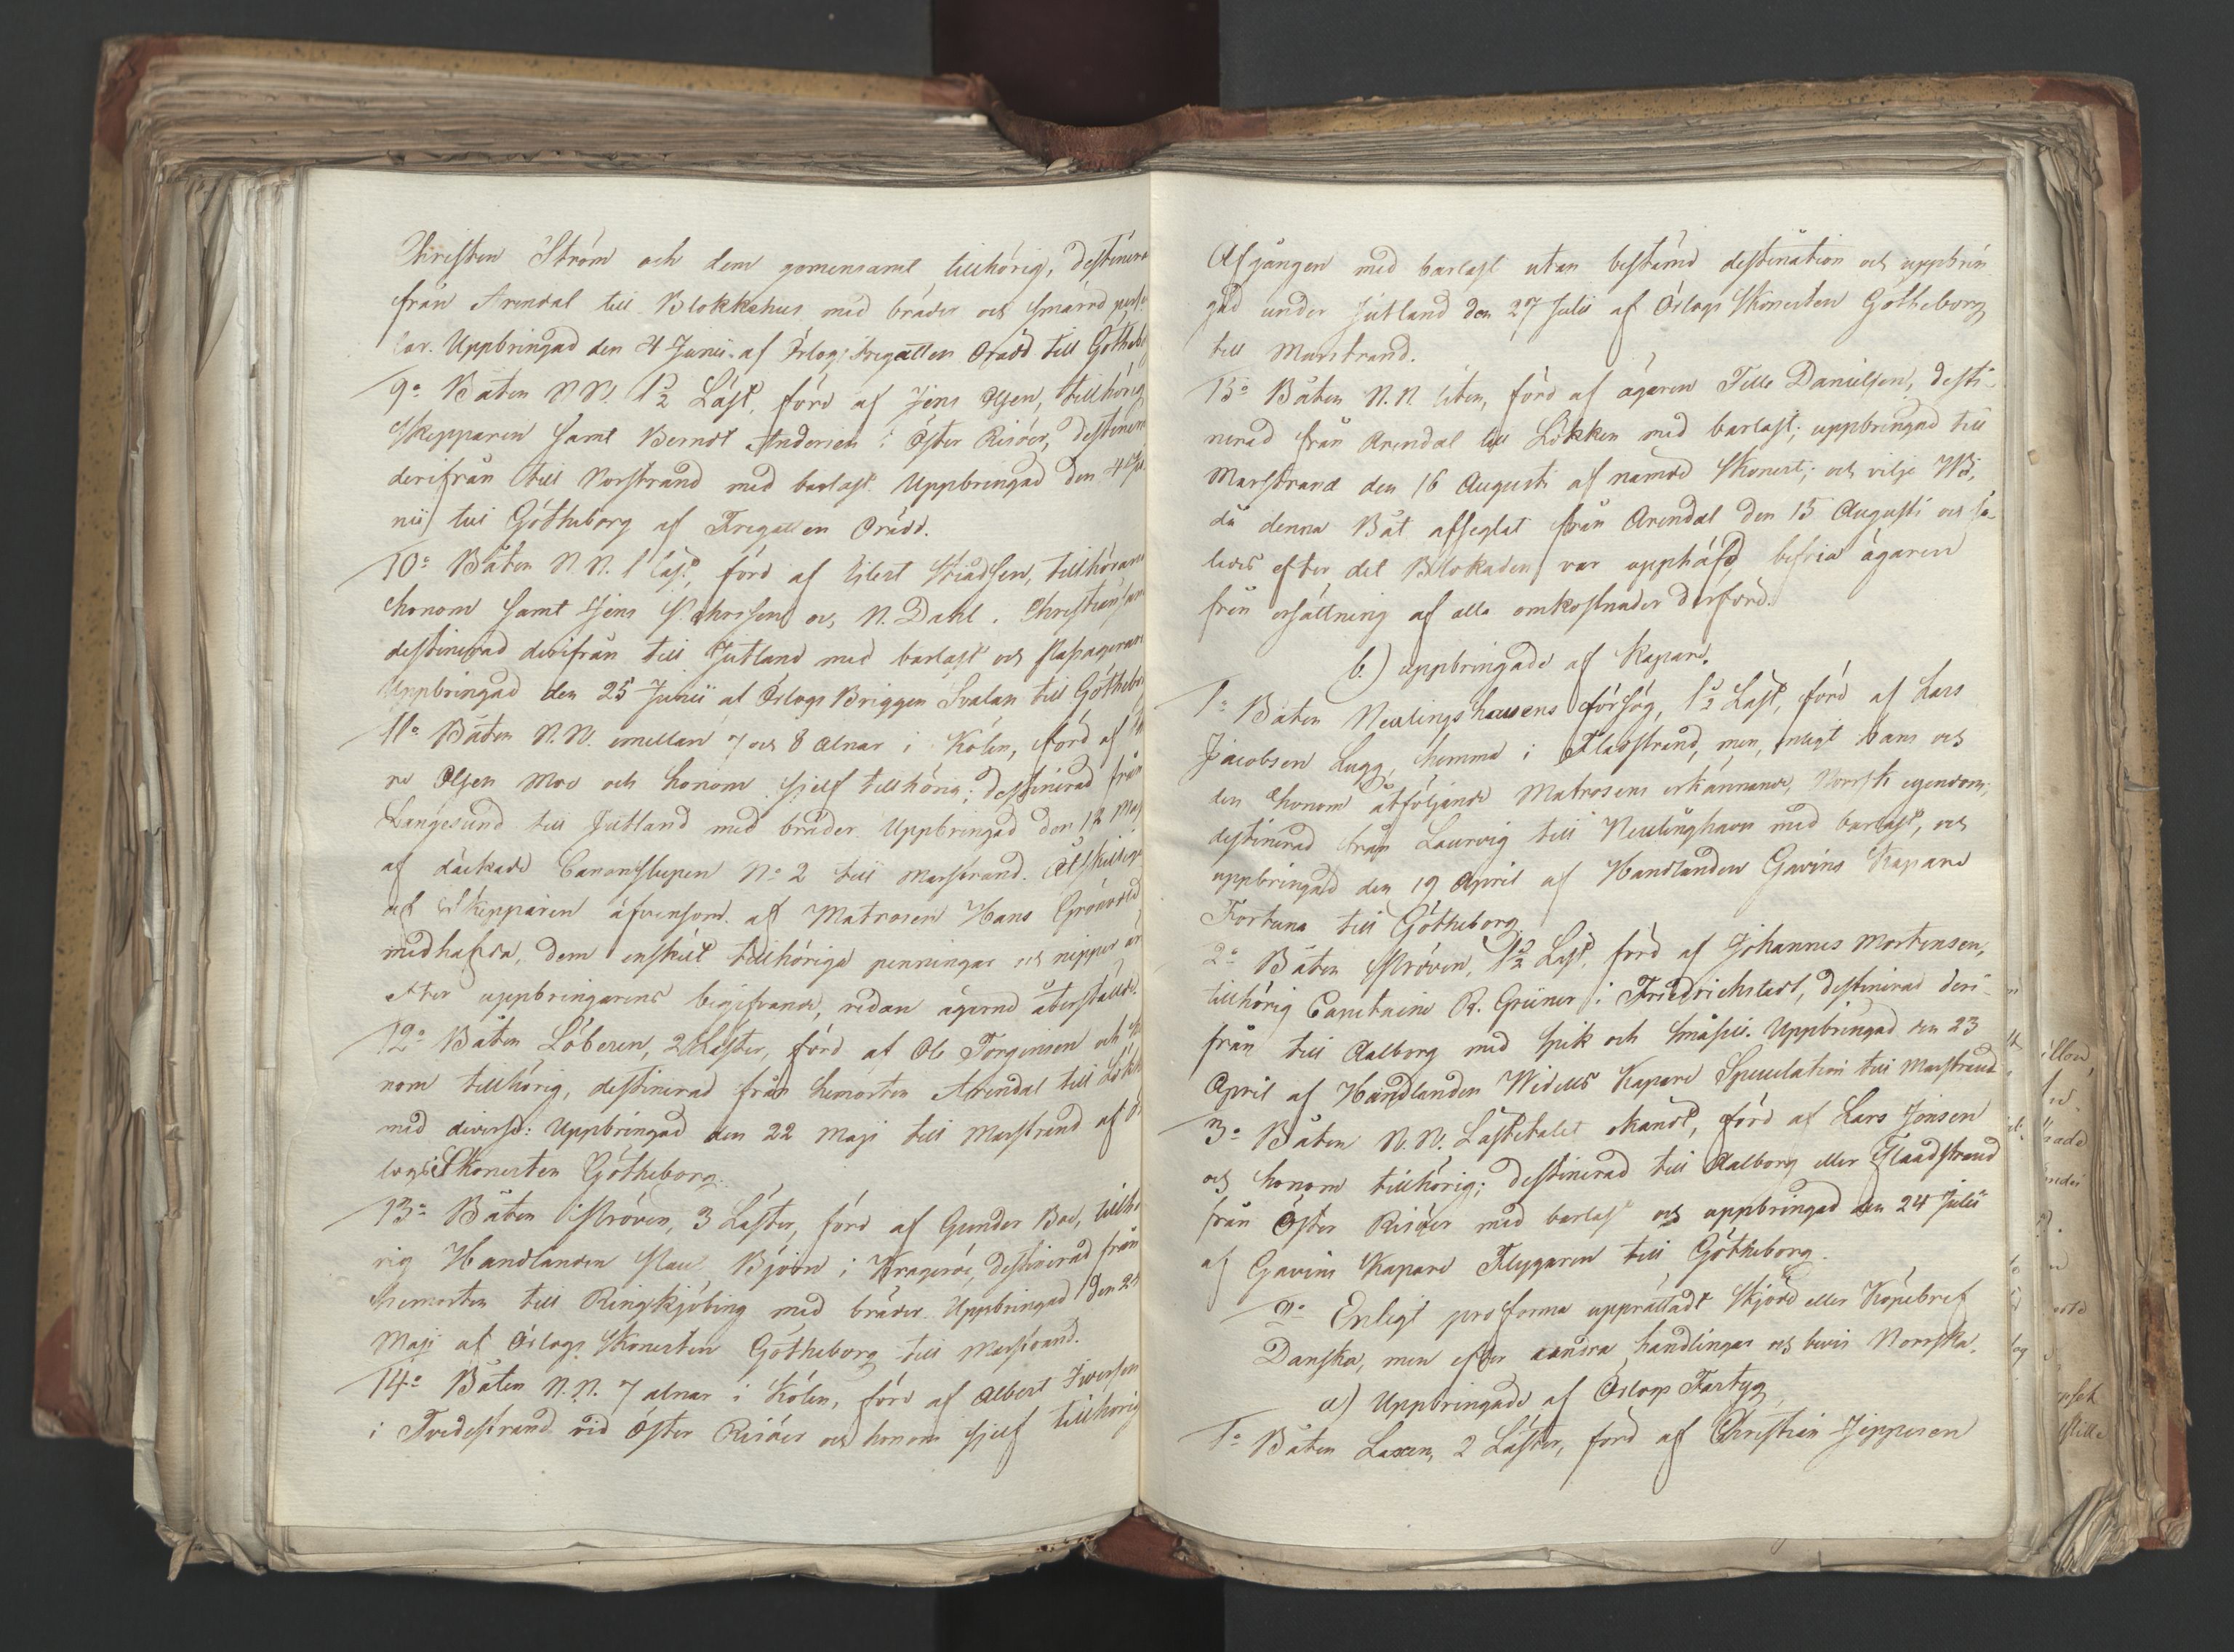 Christen Ström och dem gemensamt tillhörig, destinera
från Arendal till Blokkehus med bräder och smärre
lar. Uppbringad den 4 Junii af Örlogs Fregatten Orädd till Götheb
9o Båten N.N. 1½ Läst, förd af Jens Olsen, tillhörig
Skepparen samt Berndt Andersen i Öster Risöer, destinera
derifrån till Norstrand med barlast. Uppbringad den 4 Ju
nii till Götheborg af Fregatten Orädd.
10o Båten N.N. 1 läst, förd af Eilert tillhörand
honom samt Jens och N. Dahl i Christiansand
destinerad derifrån till Jutland med barlast och Passagerare
Uppbringad den 25 Junii af Örlogs Briggen Svalan till Götheb
11o Båten N.N. emellan 7 och 8 alnar i Kölen, förd af
re Olsen Moe och honom sjelf tillhörig; destinerad från
Langesund till Jutland med bräder. Uppbringad den 12 Maj
af däckade Canonslupen No 2 till Marstrand. Åtskillige
af Skepparen äfvensom af Matrosen Hans Grönvold
medhafda, dem enskilt tillhöriga penningar och nipper är
efter uppbringarens begifvande, redan ägarne återstälde.
12o Båten Löberen, 2 Läster, förd af Ole Torgersen och
nom tillhörig, destinerad från hemorten Arendal till Lökk
med diverse: Uppbringad den 22 Maji till Marstrand af Ör
logs Skonerten Götheborg.
13o Båten Pröven, 3 Läster, förd af Gunder Boe, tillhö
rig Handlanden Björn i Krageröe, destinerad från
hemorten till Ringkjöbing med bräder. Uppbringad den 25
Maji af Örlogs Skonerten Götheborg till Marstrand.
14o Båten N.N. 7 alnar i Kölen, förd af Albert Iversen
i Tvedestrand vid Öster Risöer och honom sjelf tillhörig
Afgången med barlast utan bestämd destination och uppbrin
gad under Jutland den 27 Julii af Örlogs Skonerten Götheborg
till Marstrand.
15o Båten N.N. liten, förd af ägaren Telle Danielsen, desti-
nerad från Arendal till Lökken med barlast; uppbringad till
Marstrand den 16 Augusti af nämde Skonert; och vilje Wi,
då denna Båt afseglat från Arendal den 15 Augusti och så-
ledes efter det Blokaden var upphäfd, befria ägaren
från ersättning af alla omkostnader derföre.
b.) uppbringade af Kapare.
1o Båten Neulingshausens försög, 1½ Läst, förd af Lars
Jacobsen Lugg, hemma i Fladstrand, men, enligt hans och
den honom åtföljande Matrosens erkännande, Norrsk egendom;
destinerad från Laurvig till Neulinghavn med barlast, och
uppbringad den 19 April af Handlanden Gavins Kapare
Fortuna till Götheborg.
2o Båten Pröven, 1½ Läst, förd af Johannes Mortensen,
tillhörig Capitaine R. Grüner i Friedrichstadt, destinerad deri-
från till Aalborg med spik och småspik. Uppbringad den 23
April af Handlanden Widells Kapare Speculation till Marstrand
3o Båten N.N. Lästetalet okändt, förd af Lars Jonsen
och honom tillhörig; destinerad till Aalborg eller Flaadstrand
från Öster Risöer med barlast och uppbringad den 24 Julii
af Gavins Kapare Flygaren till Götheborg.
2o Enligt pro forma upprättadt Skjöde eller Köpebref
Danska, men efter andra handlingar och bevis Norrska.
a) Uppbringade af Örlogs Fartyg
1o Båten Laxen, 2 Läster, förd af Christian Jeppesen